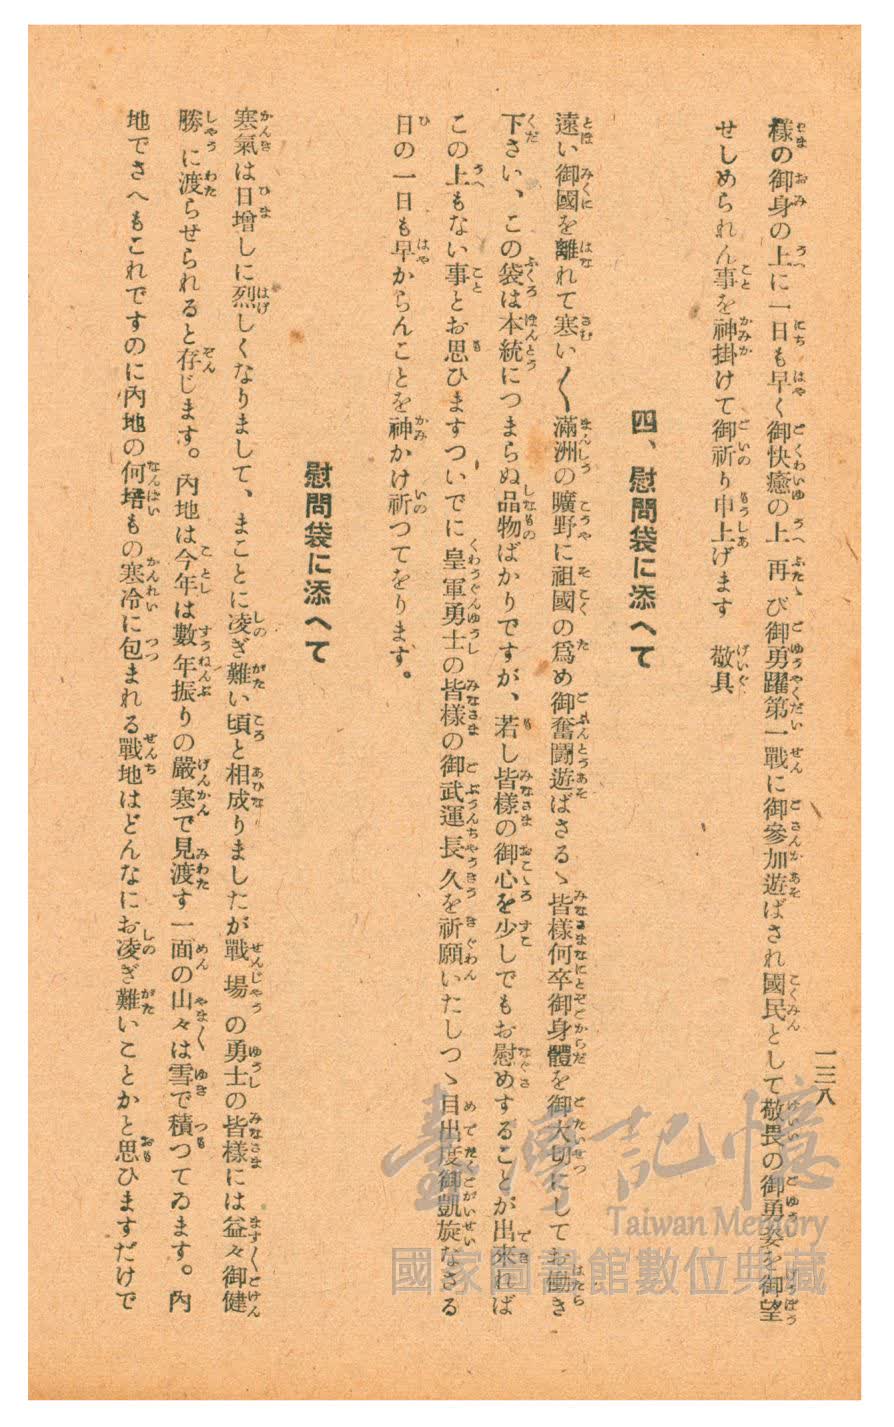 一三八
樣の御身の上に一日も早く御快癒の上再び御勇躍第一戰に御參加遊ばされ國民として敬畏の御勇姿を御望
せしめられん事を神掛けて御祈り申上げます　敬具
四、慰問袋に添へて
遠い御國を離れて寒い〱滿洲の曠野に祖國の爲め御奮鬪遊ばさるゝ皆樣何卒御身體を御大切にしてお働き
下さい、この袋は本統につまらぬ品物ばかりですが、若し皆樣の御心を少しでもお慰めすることが出來れば
この上もない事とお思ひますついでに皇軍勇士の皆樣の御武運長久を祈願いたしつゝ目出度御凱旋なさる
日の一日も早からんことを神かけ祈つてをります。
慰問袋に添へて
寒氣は日增しに烈しくなりまして、まことに凌ぎ難い頃と相成りましたが戰場の勇士の皆樣には益々御健
勝に渡らせられると存じます。內地は今年は數年振りの嚴寒で見渡す一面の山々は雪で積つてゐます。內
地でさへもこれですのに內地の何培もの寒冷に包まれる戰地はどんなにお凌ぎ難いことかと思ひますだけで
臺灣記憶
Taiwan Memory
國家圖書館數位典藏